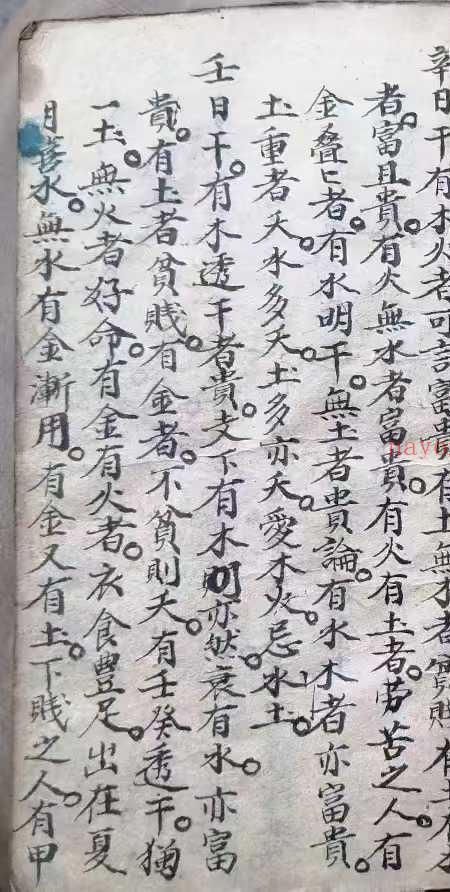 辛日干有木火者可言富貴有土無水者貧賤有土有
者富且貴。有火無水者富貴。有火有土者。勞苦之人。有
金疊〻者。有水明干。無土者貴論。有水木者亦富貴。
土重者夭。水多夭。土多亦夭。愛木火。忌水土。
壬日干。有木透干者貴。支下有木則亦然。衰有水。亦富
貴。有土者貧賤。有金者。不貧則夭。有壬癸透干。猶
一土。無火者好命。有金有火者。衣食豐足。出在夏
月喜水。無水有金漸用。有金又有土。下賤之人。有甲